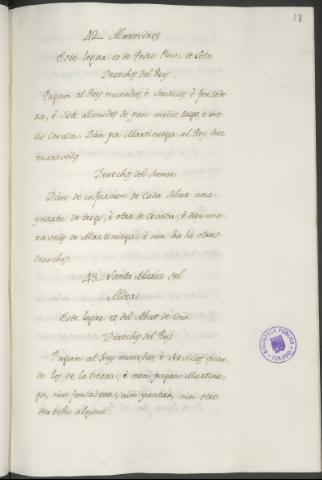 18
42 Almendres
Este logar es de Pedro Ruiz de Soto.
Derechos del Rey
Pagan al Rey monedas, é servicios, é fonsade-
ra, é siete almudes de pan medio trigo, é me-
dio cevada. Dan por Martiniega al Rey diez
maravedis
Derechos del Señor
Dan de infurcion de cada solar una
quarta de trigo, é otra de cevada, é dos ma-
ravedis de Martiniega, é non ha hi otros
derechos.
43 Santa Maria del
Este logar es del Abat de
Derechos del Rey
Pagan al Rey monedas, é servicios quan-
do los de la tierra, é non pagan Martinie-
ga, nin fonsadera, nin yantar, nin otro
derecho alguno.
BIBLIOTECA PUBLICA
TOLEDO